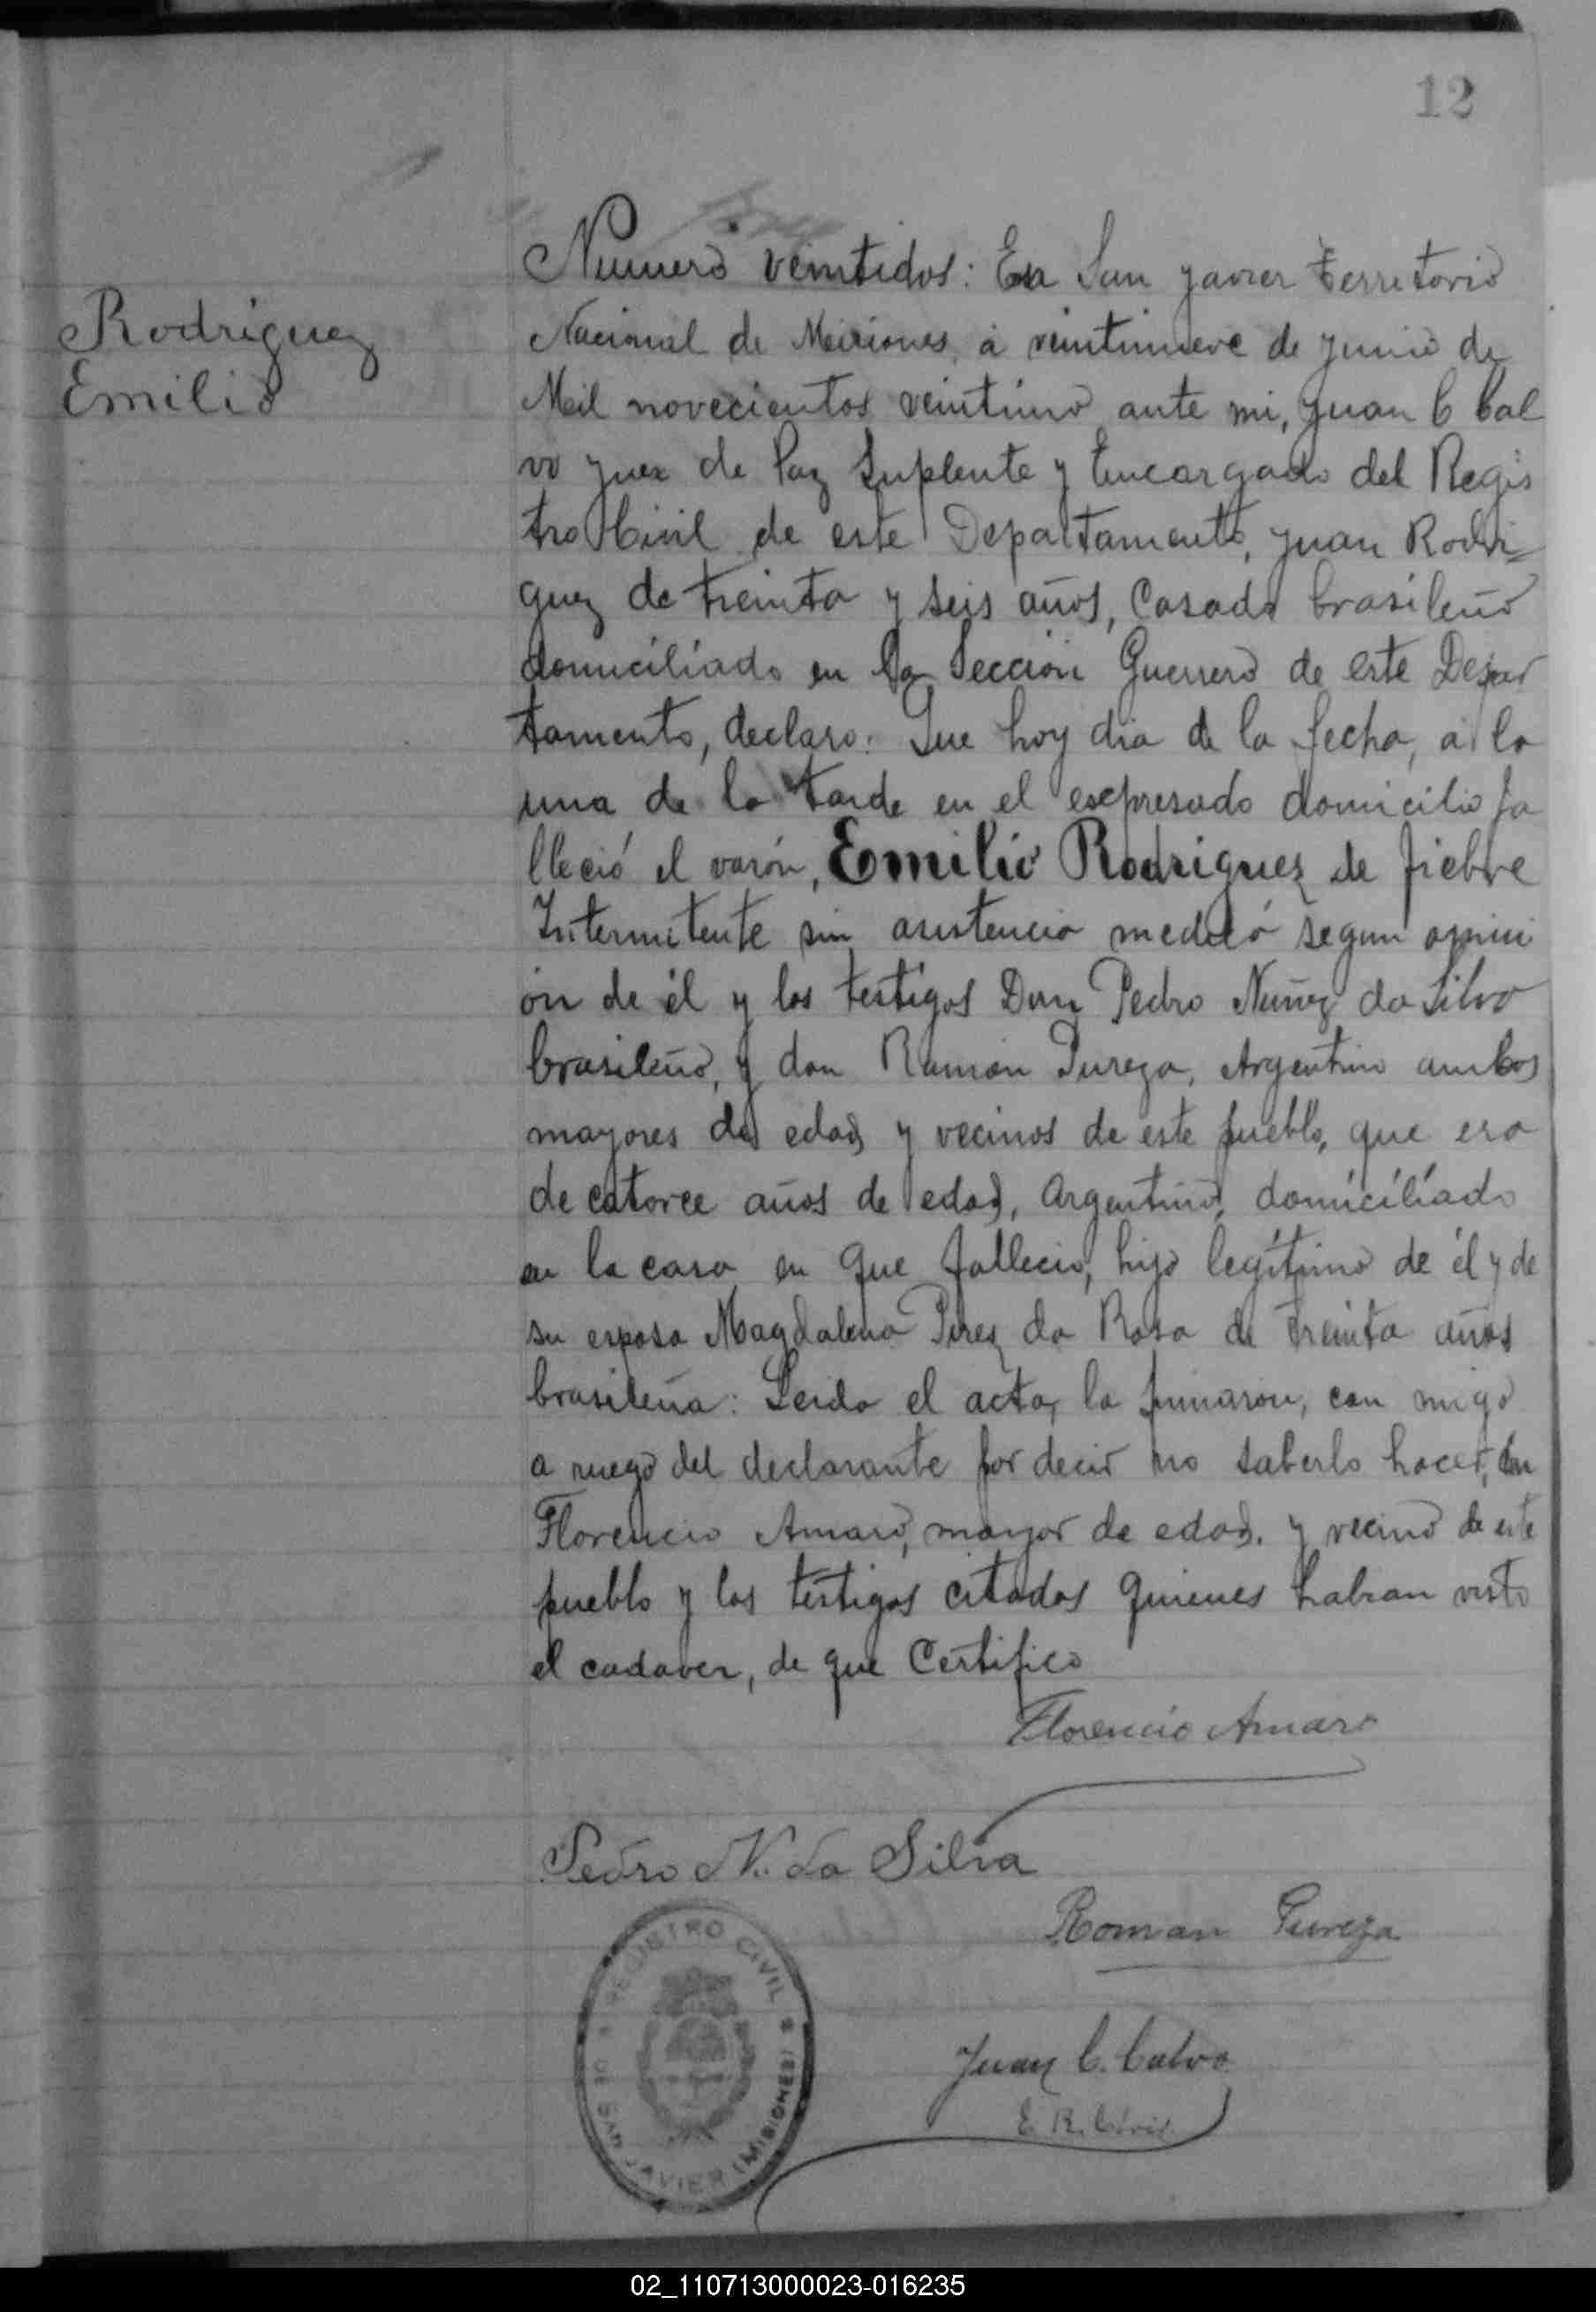 12
Rodriguez
Emilio
Numero veintidos: En San Javier territorio
Nacional de Misiones, a veintinueve de junio de
Mil novecientos veintiuno ante mi, Juan C Cal
vo Juez de Paz Suplente y Encargado del Regis
tro Civil de este Departamento, Juan Rodri
guez de treinta y seis años, Casado brasileño
domiciliado en la Sección Guerrero de este Depar
tamento, declaro: Que hoy dia de la fecha, a la
una de la tarde en el expresado domicilio fa
lleció el varón, Emilio Rodriguez de fiebre
Intermitente sin asistencia medica segun opini
ón de él y los testigos Don Pedro Nuñez da Silva
brasileño, y don Ramon Pureza, Argentino ambos
mayores de edad y vecinos de este pueblo, que era
de catorce años de edad, Argentino, domiciliado
en la casa en que fallecio, hijo legítimo de él y de
su esposa Magdalena Perez da Rosa de treinta años
brasileña: Leida el acta, la firmaron, con migo
a ruego del declarante por decir no saberlo hacer, Don
Florencio Amaro, mayor de edad. y vecino de este
pueblo y los testigos citados quienes habian visto
el cadaver, de que Certifico
Florencio Amaro
Pedro N. da Silva
Roman Pureza
Juan C. Calvo
E. R. Civil
REGISTRO CIVIL
DE SAN JAVIER (MISIONES)
02_110713000023-016235